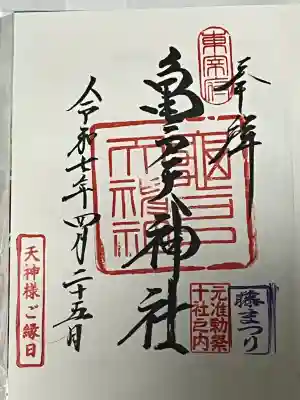 奉拝
東宰府
亀戸天神社
令和七年四月二十五日
天神様ご縁日
元准勅祭
十社之内
藤まつり